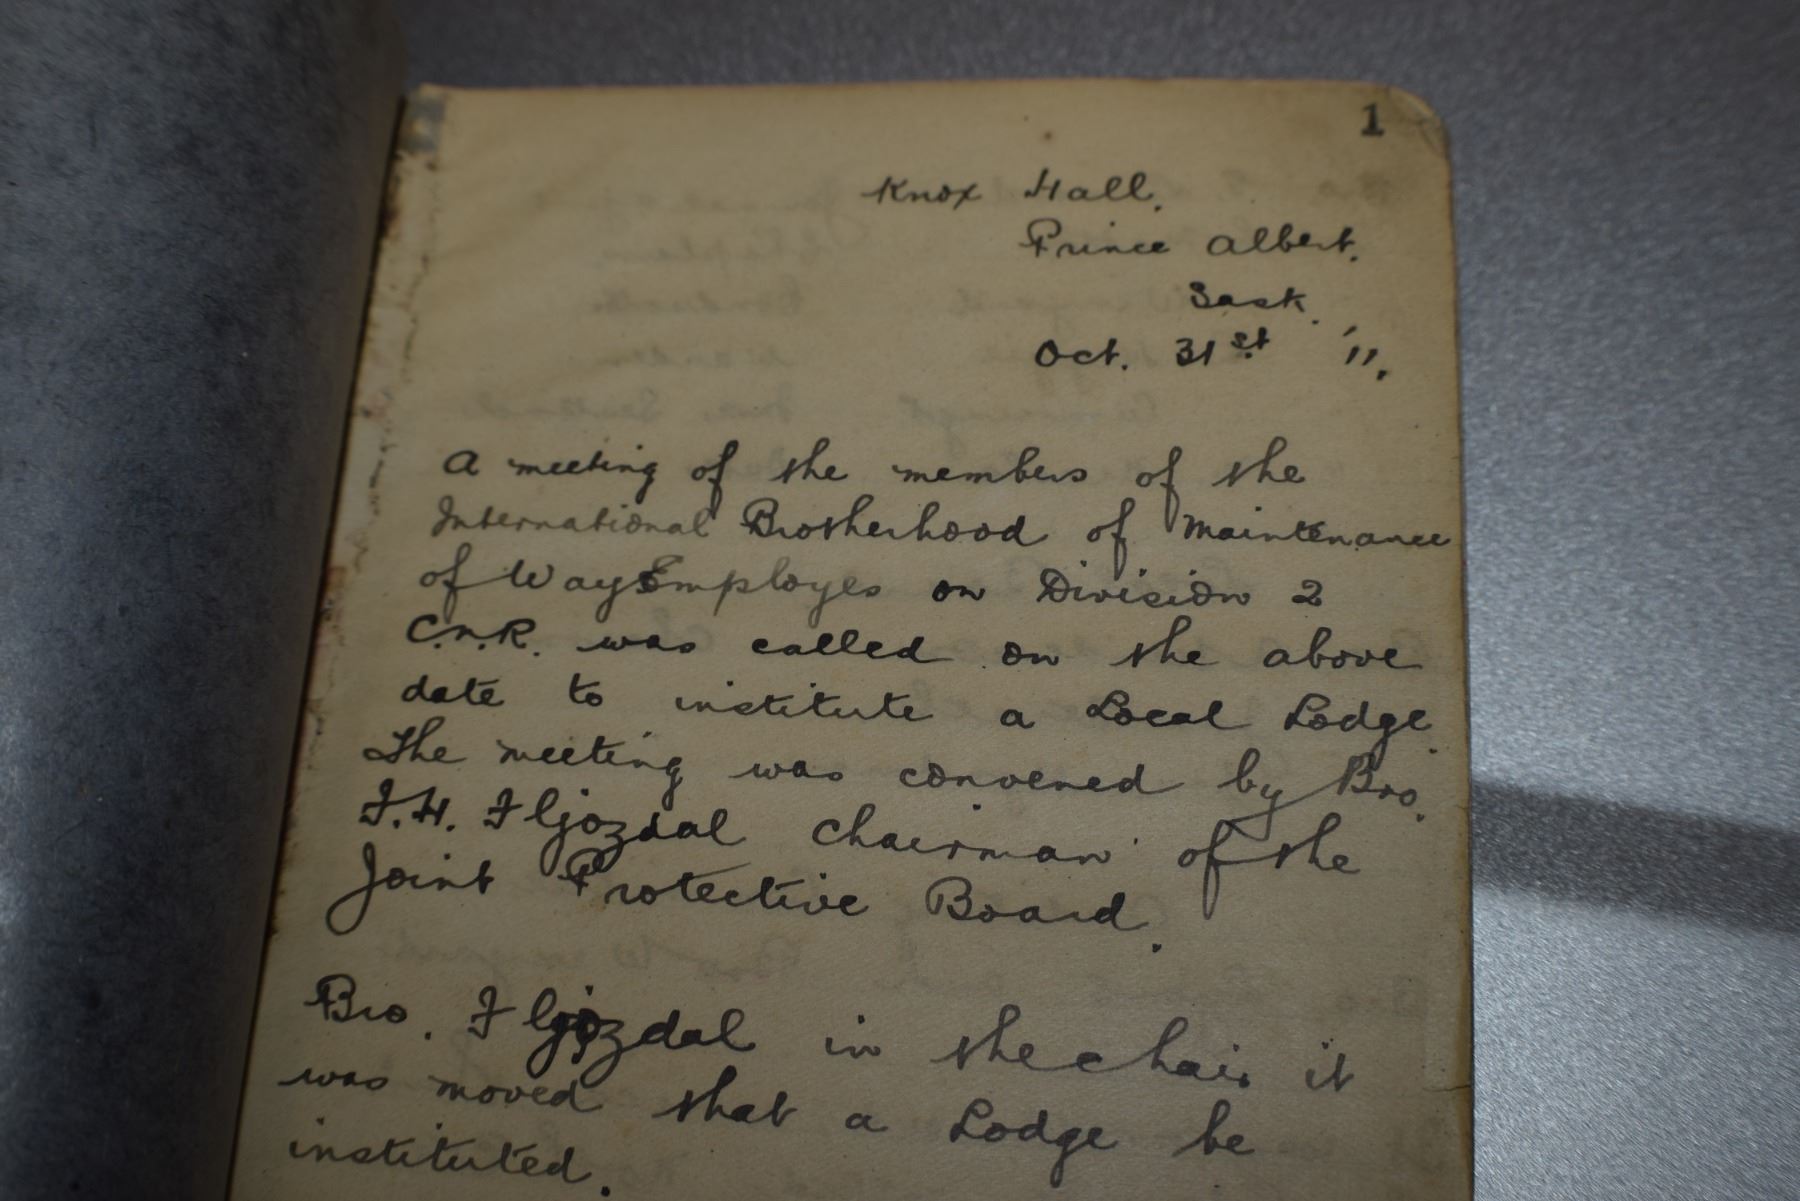 1
Knox Hall.
Prince Albert.
Sask.
Oct. 31st '11.
A meeting of the members of the
International Brotherhood of Maintenance
of Way Employes on Division 2
C.N.R. was called on the above
date to institute a Local Lodge.
The meeting was convened by Bro.
F.H. Fljozdal Chairman of the
Joint Protective Board.
Bro. Fljozdal in the chair it
was moved that a Lodge be
instituted.